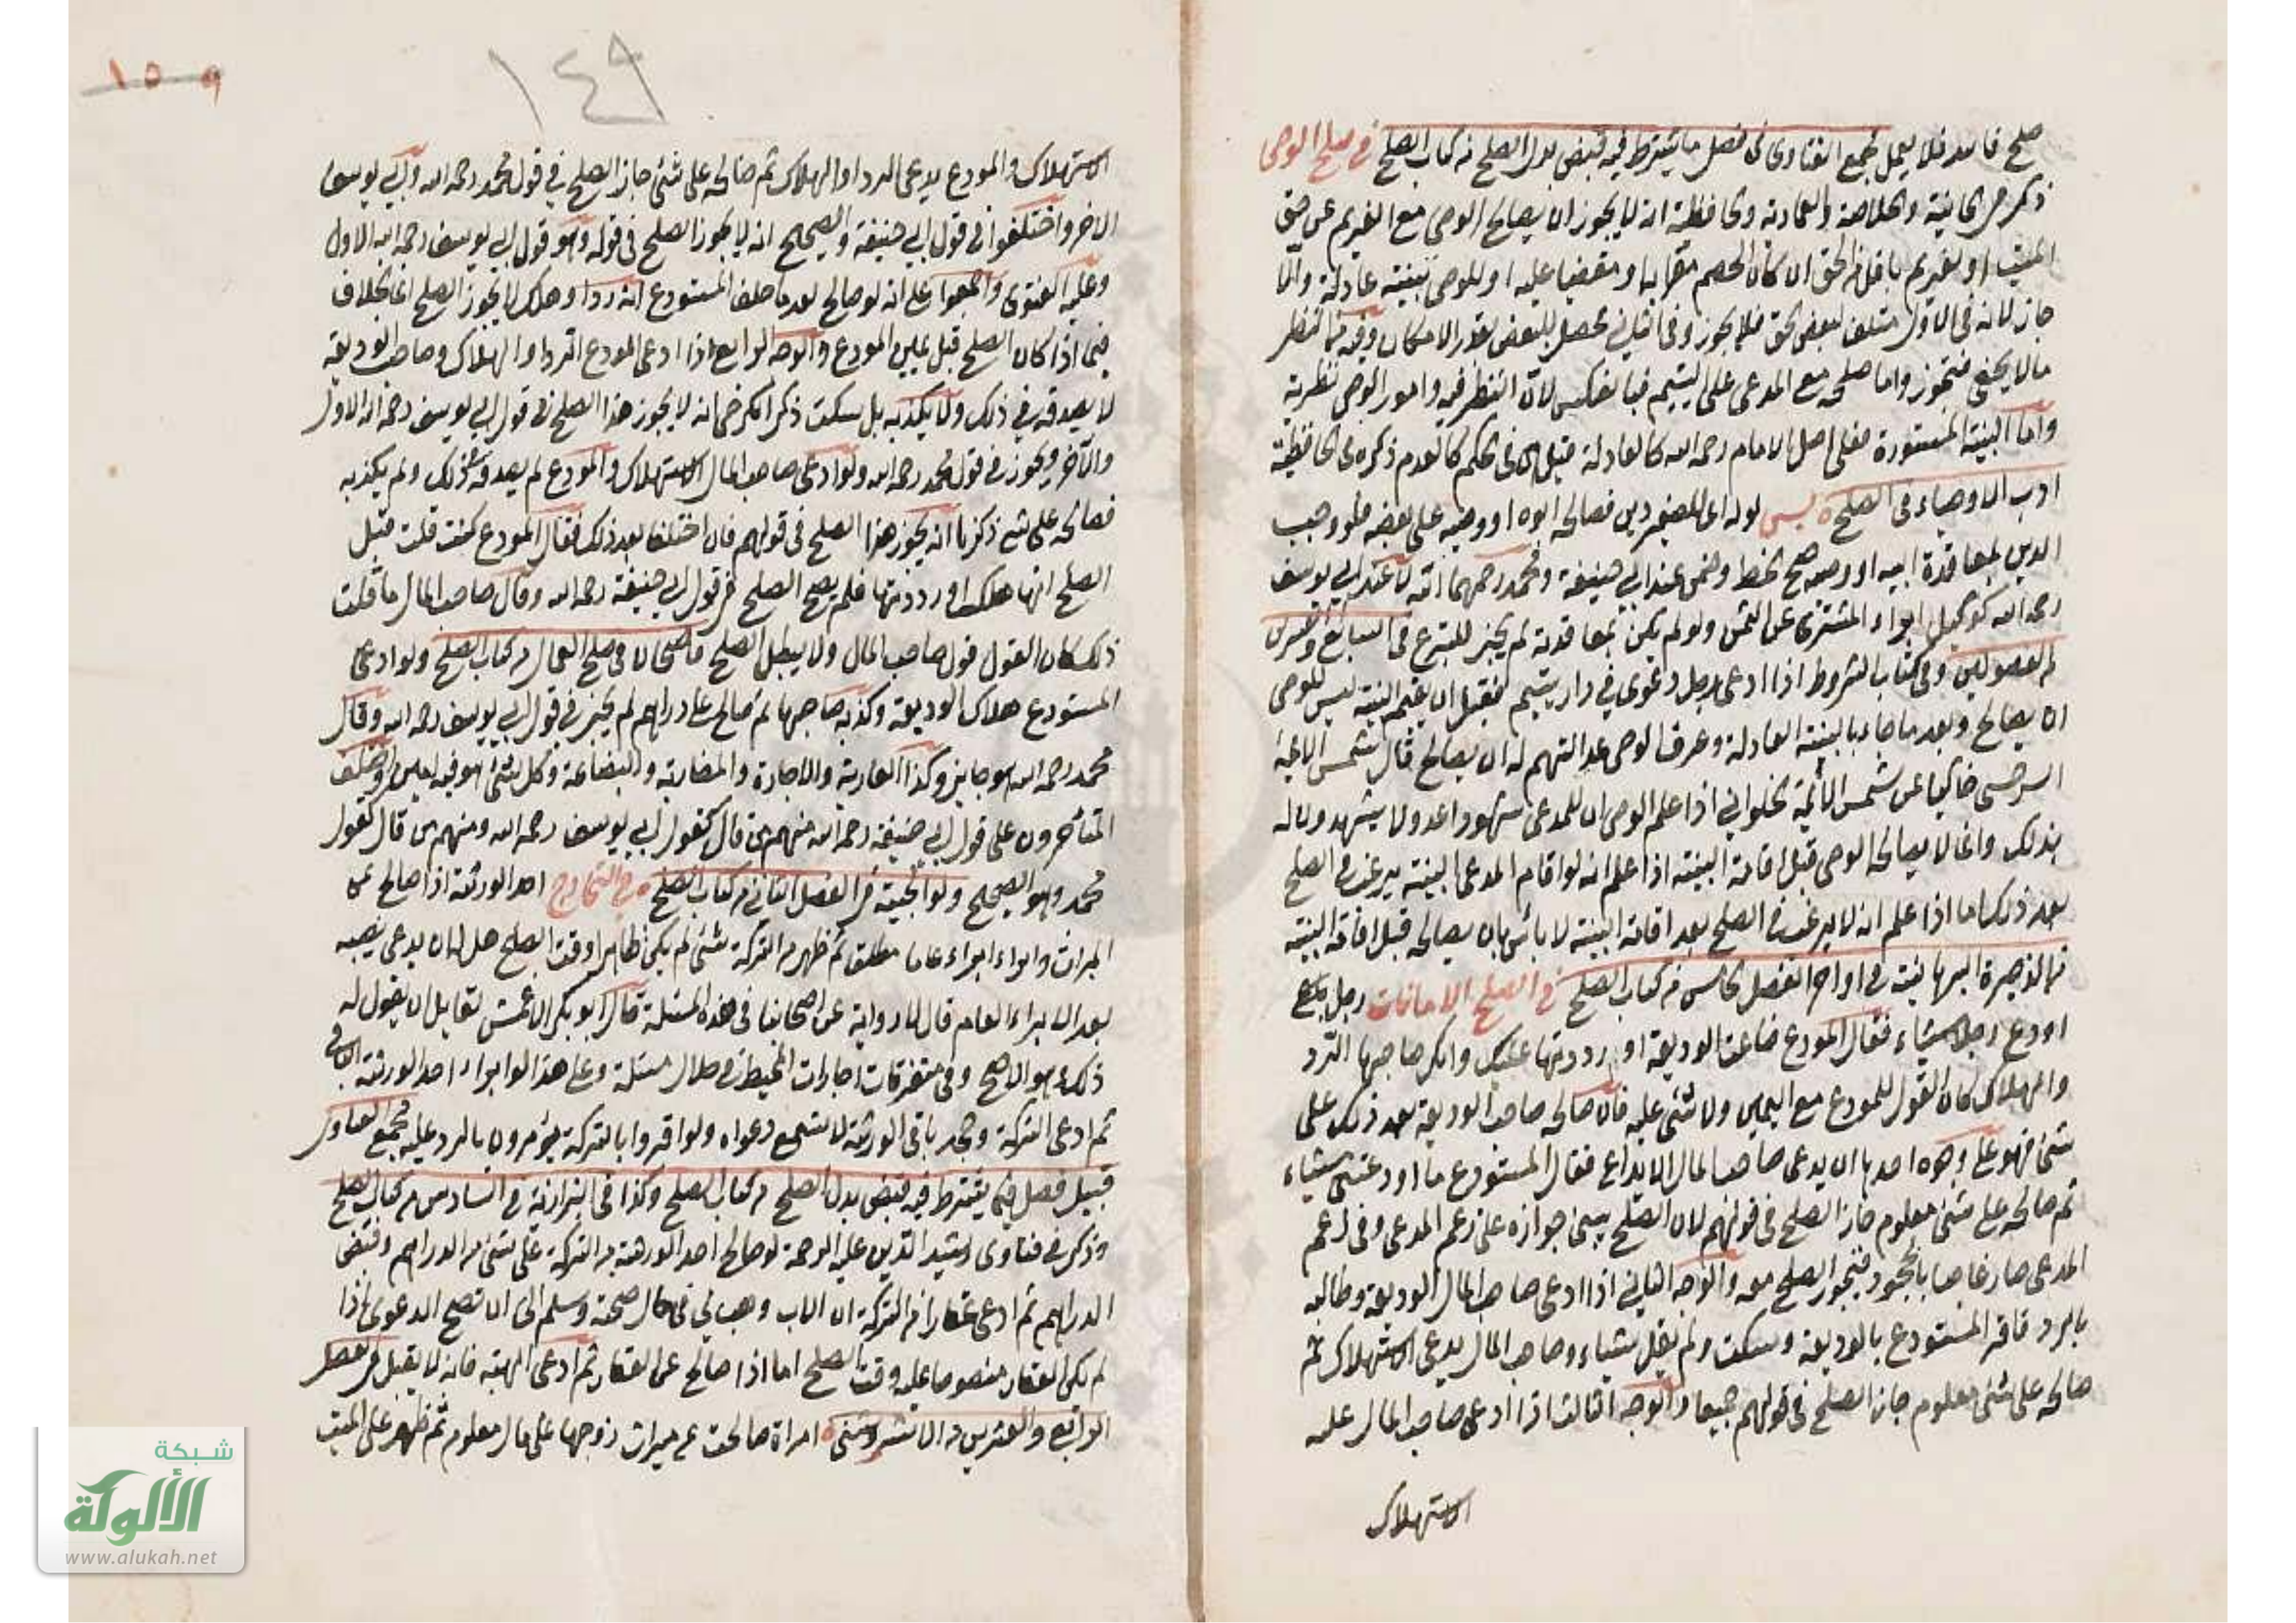 صلح فاسد فلا يعمل مجمع الفتاوى في فصل ما يشترط فيه قبض بدل الصلح من كتاب الصلح في صلح الوصي
ذكر في الخانية والخلاصة والعمادية والحافظية انه لا يجوز ان يصالح الوصي مع الغريم عن حق
الميت او لغريم باقل من الحق ان كان الخصم مقرا به او مقضيا عليه او للوصي بينة عادلة والا
جاز لانه في الاول متلف لبعض الحق فلا يجوز وفي الثاني محصل للبعض بقدر الامكان وفيه من النظر
مالا يخفى فتجوز واما صلحه مع المدعي على اليتيم فبالعكس لان النظر فيه وامور الوصي نظرية
واما البينة المستورة فعلى اصل الامام رحمه الله كالعادلة قبل وفي الحكم كالعدم ذكره في الحافظية
ادب الاوصياء في الصلح لو للصغير دين فصالحه ابوه او وصيه على بعضه فلو وجب
الدين بمعاقدة ابيه او وصيه صح الحط وضمن عند ابي حنيفة ومحمد رحمهما الله لا عند ابي يوسف
رحمه الله كوكيل ابراء المشتري عن الثمن ولو لم يكن بمعاقدته لم يجز للتبرع في السابع والعشرين
من الفصولين وفي كتاب الشروط اذا ادعى رجل دعوى في دار يتيم فقبل ان يقيم البينة ليس للوصي
ان يصالح وبعد ما جاء بالبينة العادلة وعرف الوصي عدالتهم له ان يصالح قال شمس الائمة
السرخسي حاكيا عن شمس الائمة الحلواني اذا علم الوصي ان للمدعي شهودا عدولا يشهدون له
بذلك وانما لا يصالح الوصي قبل اقامة البينة اذا علم انه لو اقام المدعي البينة يرغب في الصلح
بعد ذلك اما اذا علم انه لا يرغب في الصلح بعد اقامة البينة لا بأس بان يصالحه قبل اقامة البينة
من الذخيرة البرهانية في اواخر الفصل الخامس من كتاب الصلح في الصلح الامانات رجل
اودع رجلا شيئا فقال المودع ضاعت الوديعة او رددتها عليك وانكر صاحبها الرد
والهلاك كان القول للمودع مع اليمين ولا شئ عليه فان صالحه صاحب الوديعة بعد ذلك على
شئ فهو على وجوه احدها ان يدعي صاحب المال الايداع فقال المستودع ما اودعتني شيئا
ثم صالحه على شئ معلوم جاز الصلح في قولهم لان الصلح يبنى جوازه على زعم المدعي وفي زعم
المدعي صار غاصبا بالجحود فيجوز الصلح معه والوجه الثاني اذا ادعى صاحب المال الوديعة وطالبه
بالرد فاقر المستودع بالوديعة وسكت ولم يقل شيئا وصاحب المال يدعي الاستهلاك ثم
صالحه على شئ معلوم جاز الصلح في قولهم جميعا والوجه الثالث اذا ادعى صاحب المال عليه
الاستهلاك
١٤٩
١٥٩
الاستهلاك والمودع يدعي الرد او الهلاك ثم صالحه على شئ جاز الصلح في قول محمد رحمه الله وابي يوسف
الاخر واختلفوا في قول ابي حنيفة والصحيح انه لا يجوز الصلح في قوله وهو قول ابي يوسف رحمه الله الاول
وعليه الفتوى واجمعوا على انه لو صالح بعد ما حلف المستودع انه رد او هلك لا يجوز الصلح انما الخلاف
فيما اذا كان الصلح قبل يمين المودع والوجه الرابع اذا ادعى المودع الرد او الهلاك وصاحب الوديعة
لا يصدقه في ذلك ولا يكذبه بل سكت ذكر الكرخي انه لا يجوز هذا الصلح في قول ابي يوسف رحمه الله الاول
والآخر ويجوز في قول محمد رحمه الله ولو ادعى صاحب المال الاستهلاك والمودع لم يصدقه في ذلك ولم يكذبه
فصالحه على شئ ذكرنا انه يجوز هذا الصلح في قولهم فان اختلفا بعد ذلك فقال المودع كنت قلت قبل
الصلح انها هلكت او رددتها فلم يصح الصلح في قول ابي حنيفة رحمه الله وقال صاحب المال ما قلت
ذلك كان القول قول صاحب المال ولا يبطل الصلح قاضيخان في صلح العمال من كتاب الصلح ولو ادعى
المستودع هلاك الوديعة وكذبه صاحبها ثم صالح على دراهم لم يجز في قول ابي يوسف رحمه الله وقال
محمد رحمه الله هو جايز وكذا العارية والاجارة والمضاربة والبضاعة وكل شئ هو فيه امين واختلف
المتأخرون على قول ابي حنيفة رحمه الله منهم من قال كقول ابي يوسف رحمه الله ومنهم من قال كقول
محمد وهو الصحيح ولوالجية في الفصل الثاني من كتاب الصلح في التخارج احد الورثة اذا صالح عن
الميراث وابراء ابراء عاما مطلق ثم ظهر من التركة شئ لم يكن ظاهرا وقت الصلح هل له ان يدعي نصيبه
بعد الابراء العام قال لا رواية عن اصحابنا في هذه المسئلة قال ابو بكر الاعمش لقايل ان يقول له
ذلك وهو الاصح وفي متفرقات اجارات المحيط في خلال مسئلة وعلى هذا لو ابراء احد الورثة الباقي
ثم ادعى التركة وجحد باقي الورثة لا تسمع دعواه ولو اقروا بالتركة يؤمرون بالرد عليه مجمع الفتاوى
قبيل فصل فيما يشترط فيه قبض بدل الصلح من كتاب الصلح وكذا في البزازية في السادس من كتاب الصلح
وذكر في فتاوى رشيد الدين عليه الرحمة لو صالح احد الورثة من التركة على شئ من الدراهم وقبض
الدراهم ثم ادعى عقارا من التركة ان الاب وهب لي في حال صحته وسلم الي ان تصح الدعوى اذا
لم يكن العقار منصوصا عليه وقت الصلح اما اذا صالح عن العقار ثم ادعى الهبة فانه لا يقبل في الفصل
الرابع والعشرين من امراة صالحت من ميراث زوجها على مال معلوم ثم ظهر على الميت
شبكة
الألوكة
www.alukah.net